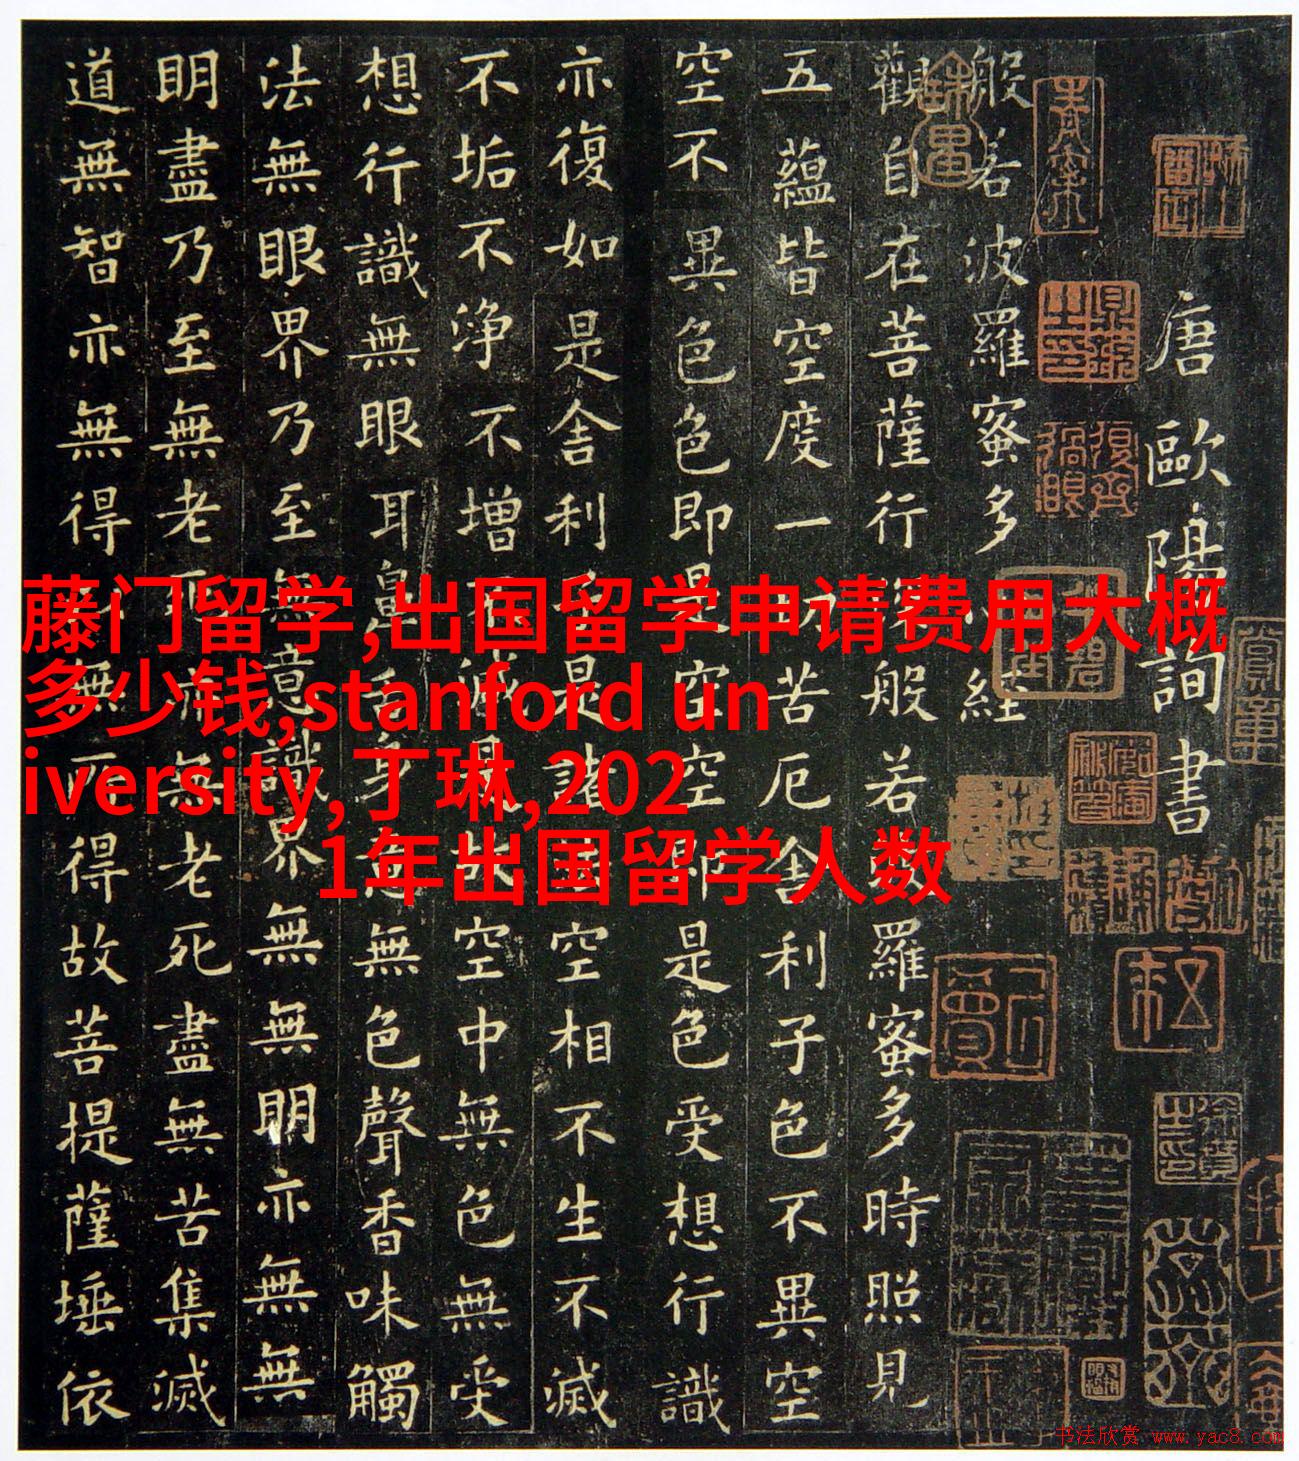 唐歐陽詢書
般若波羅蜜多心經
觀自在菩薩行深般若波羅蜜多時照見
五蘊皆空度一切苦厄舍利子色不異空
空不異色色即是空空即是色受想行識
亦復如是舍利子是諸法空相不生不滅
不垢不淨不增不減是故空中無色無受
想行識無眼耳鼻舌身意無色聲香味觸
法無眼界乃至無意識界無無明亦無無
明盡乃至無老死亦無老死盡無苦集滅
道無智亦無得以無所得故菩提薩埵依
藤门留学,出国留学申请费用大概
多少钱,stanford un
iversity,丁琳,202
1年出国留学人数
书法欣赏 www.yac8.com